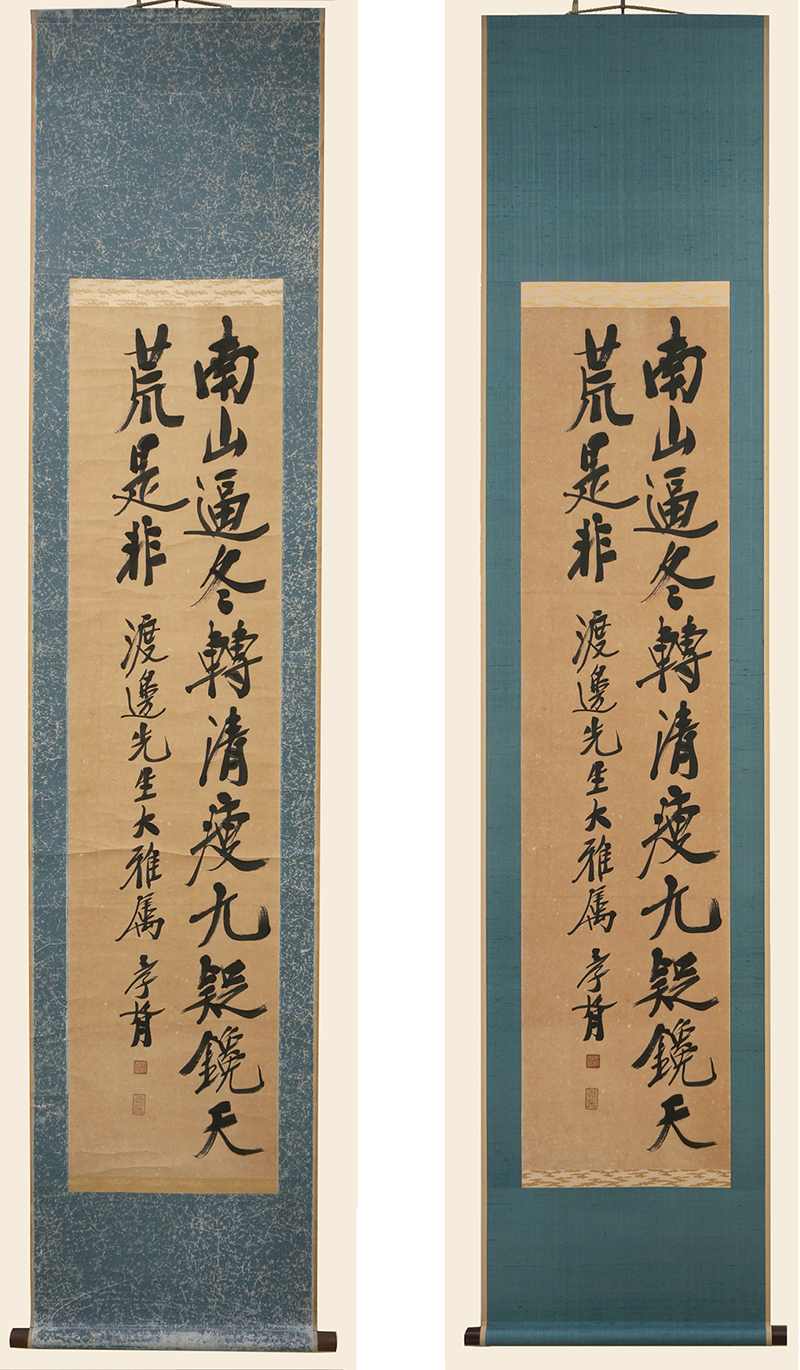 南山逼冬轉清瘦九疑鑱天
荒是非 渡邊先生大雅屬 孝胥
南山逼冬轉清瘦九疑鑱天
荒是非 渡邊先生大雅屬 孝胥